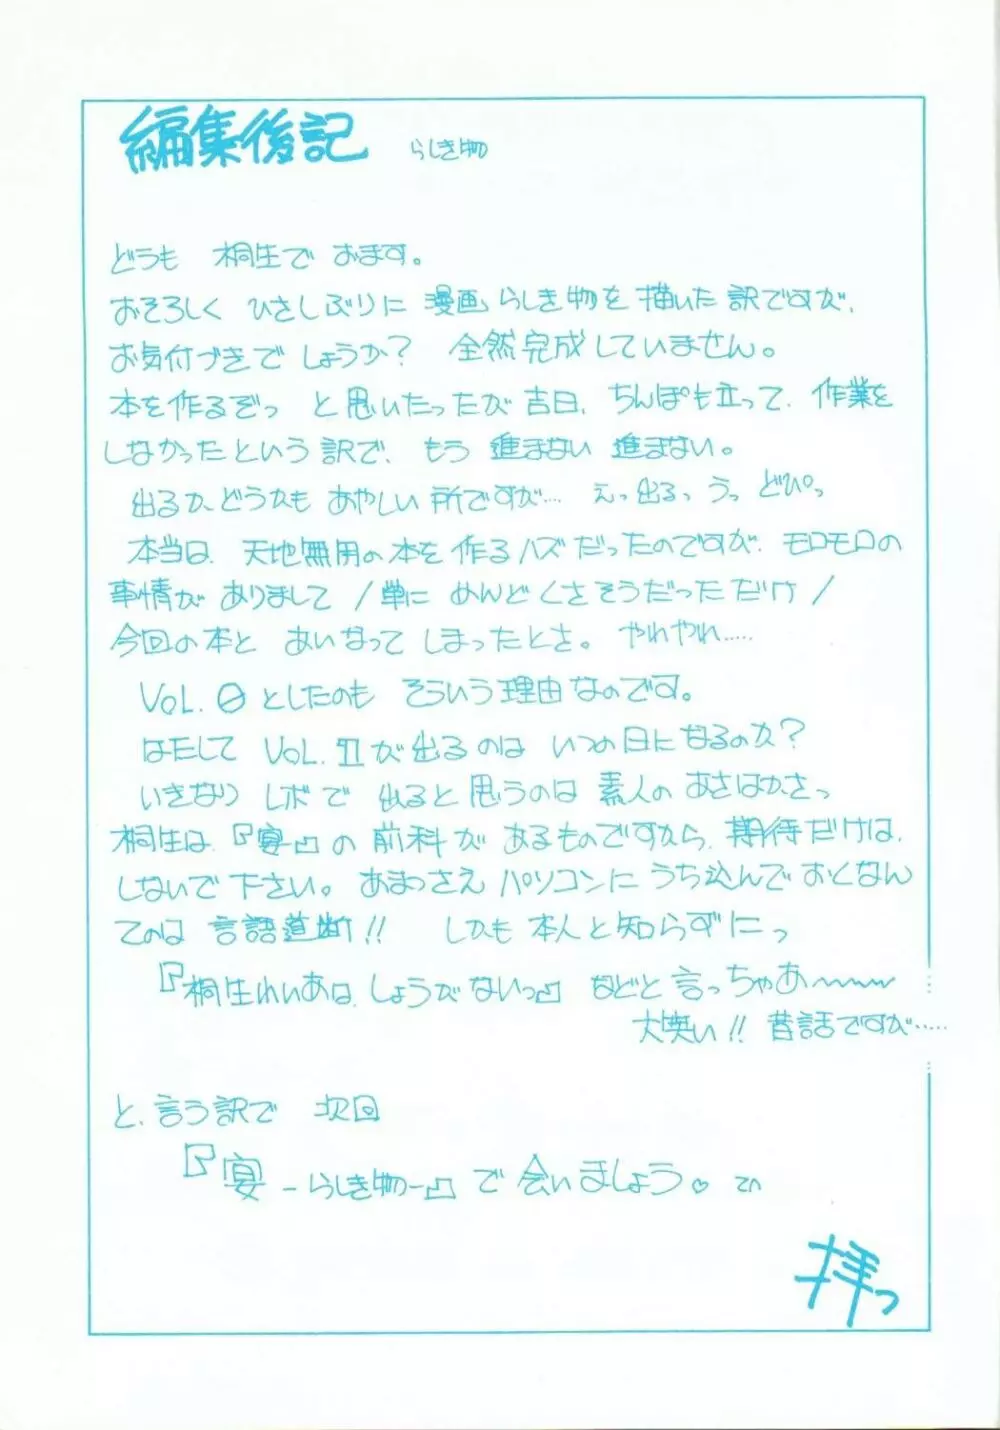 編集後記 らしき物
どうも 桐生で おます。
おそろしく ひさしぶりに 漫画らしき物を 描いた 訳ですが、
お気付づきで しょうか? 全然完成していません。
本を作るぞっ と思いたったが吉日、ちんぽも立って、作業を
しなかったという訳で、もう 進まない 進まない。
出るか、どうかも あやしい所ですが…. えっ出るっ うっ どぴっ
本当は、天地無用の本を作るハズだったのですが、モロモロの
事情が ありまして /単に めんどくさそうだっただけ/
今回の本と あいなって しまったとさ。 やれやれ.....
VOL.0 としたのも そういう理由なのです。
はたして VOL.Ⅱが出るのは いつの日になるのか?
いきなり レボで 出ると思うのは 素人の あさはかさっ
桐生は、『宴』の 前科が あるものですから、期待だけは、
しないで下さい。あまつさえ パソコンに うち込んで おくなん
てのは 言語道断!! しかも 本人と知らずにっ
『桐生れいあは、しょうがないっ』などと言っちゃあ〜〜〜
大笑い!! 昔話ですが.....
と、言う訳で 次回
『宴-らしき物-』で 会いましょう♡ てへ
拝っ